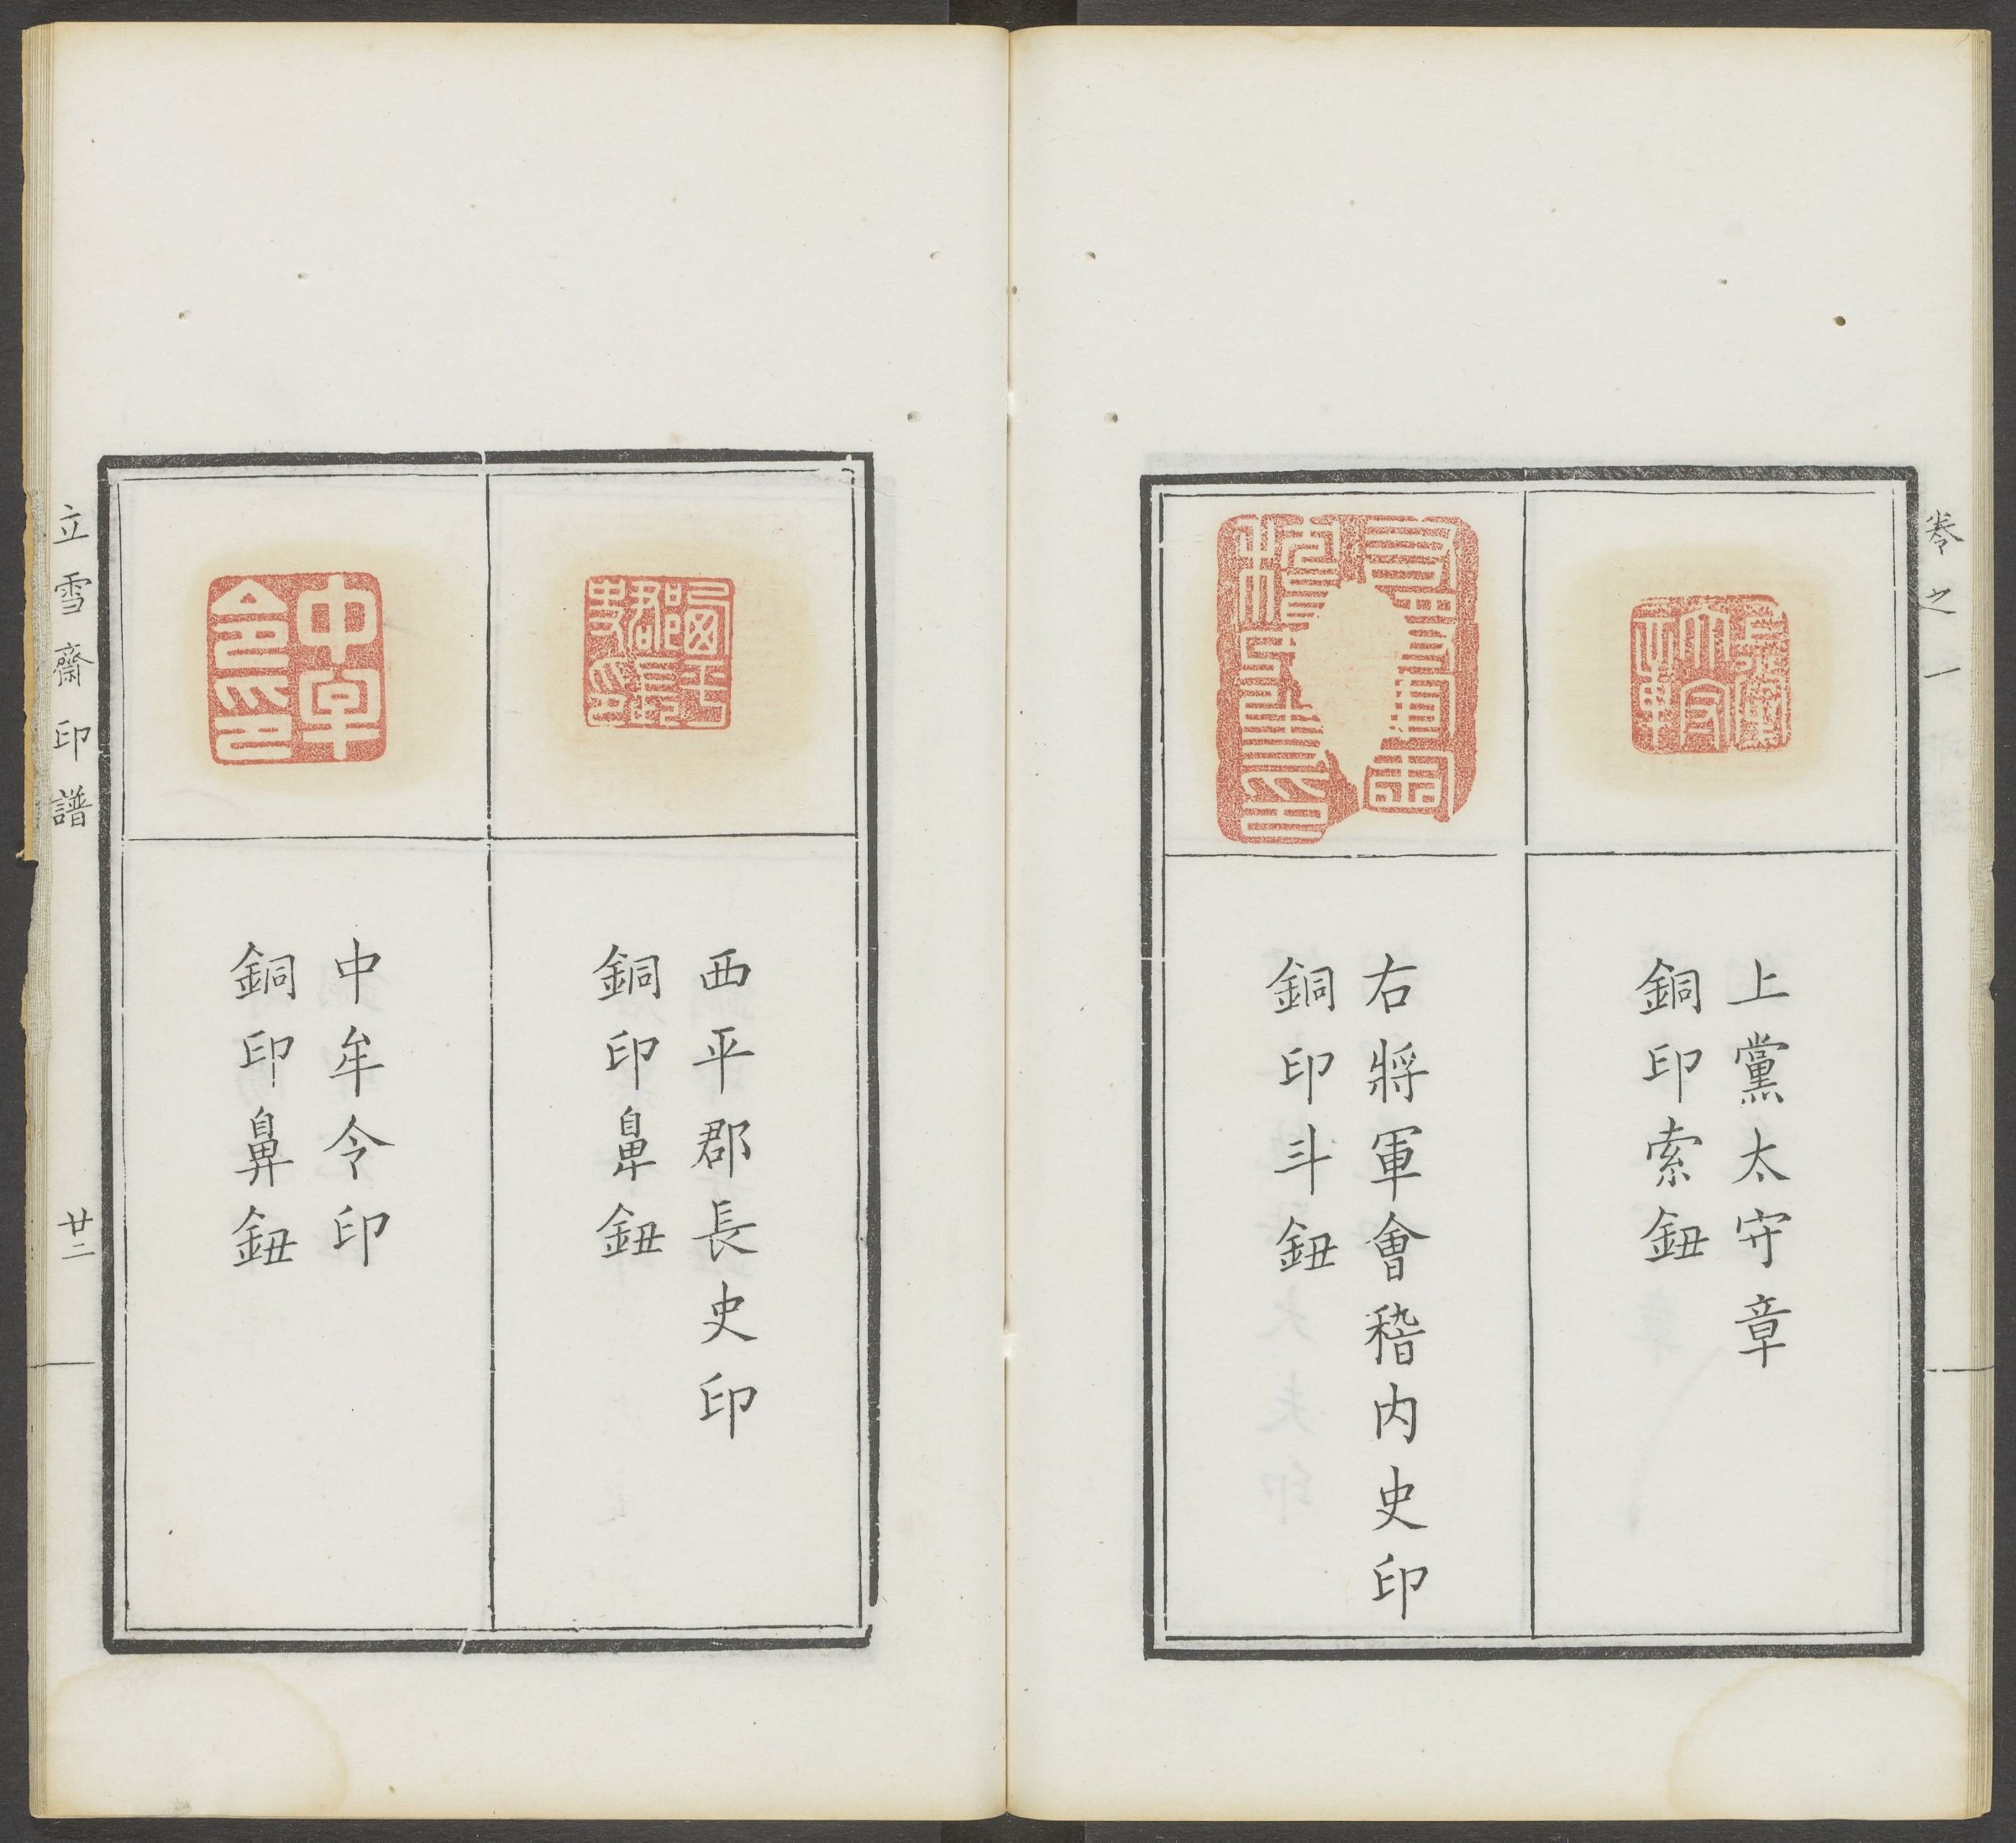 卷之一
上黨太守章
銅印索鈕
右將軍會稽内史印
銅印斗鈕
西平郡長史印
銅印鼻鈕
中牟令印
銅印鼻鈕
立雪齋印譜
廿二
中牟令印